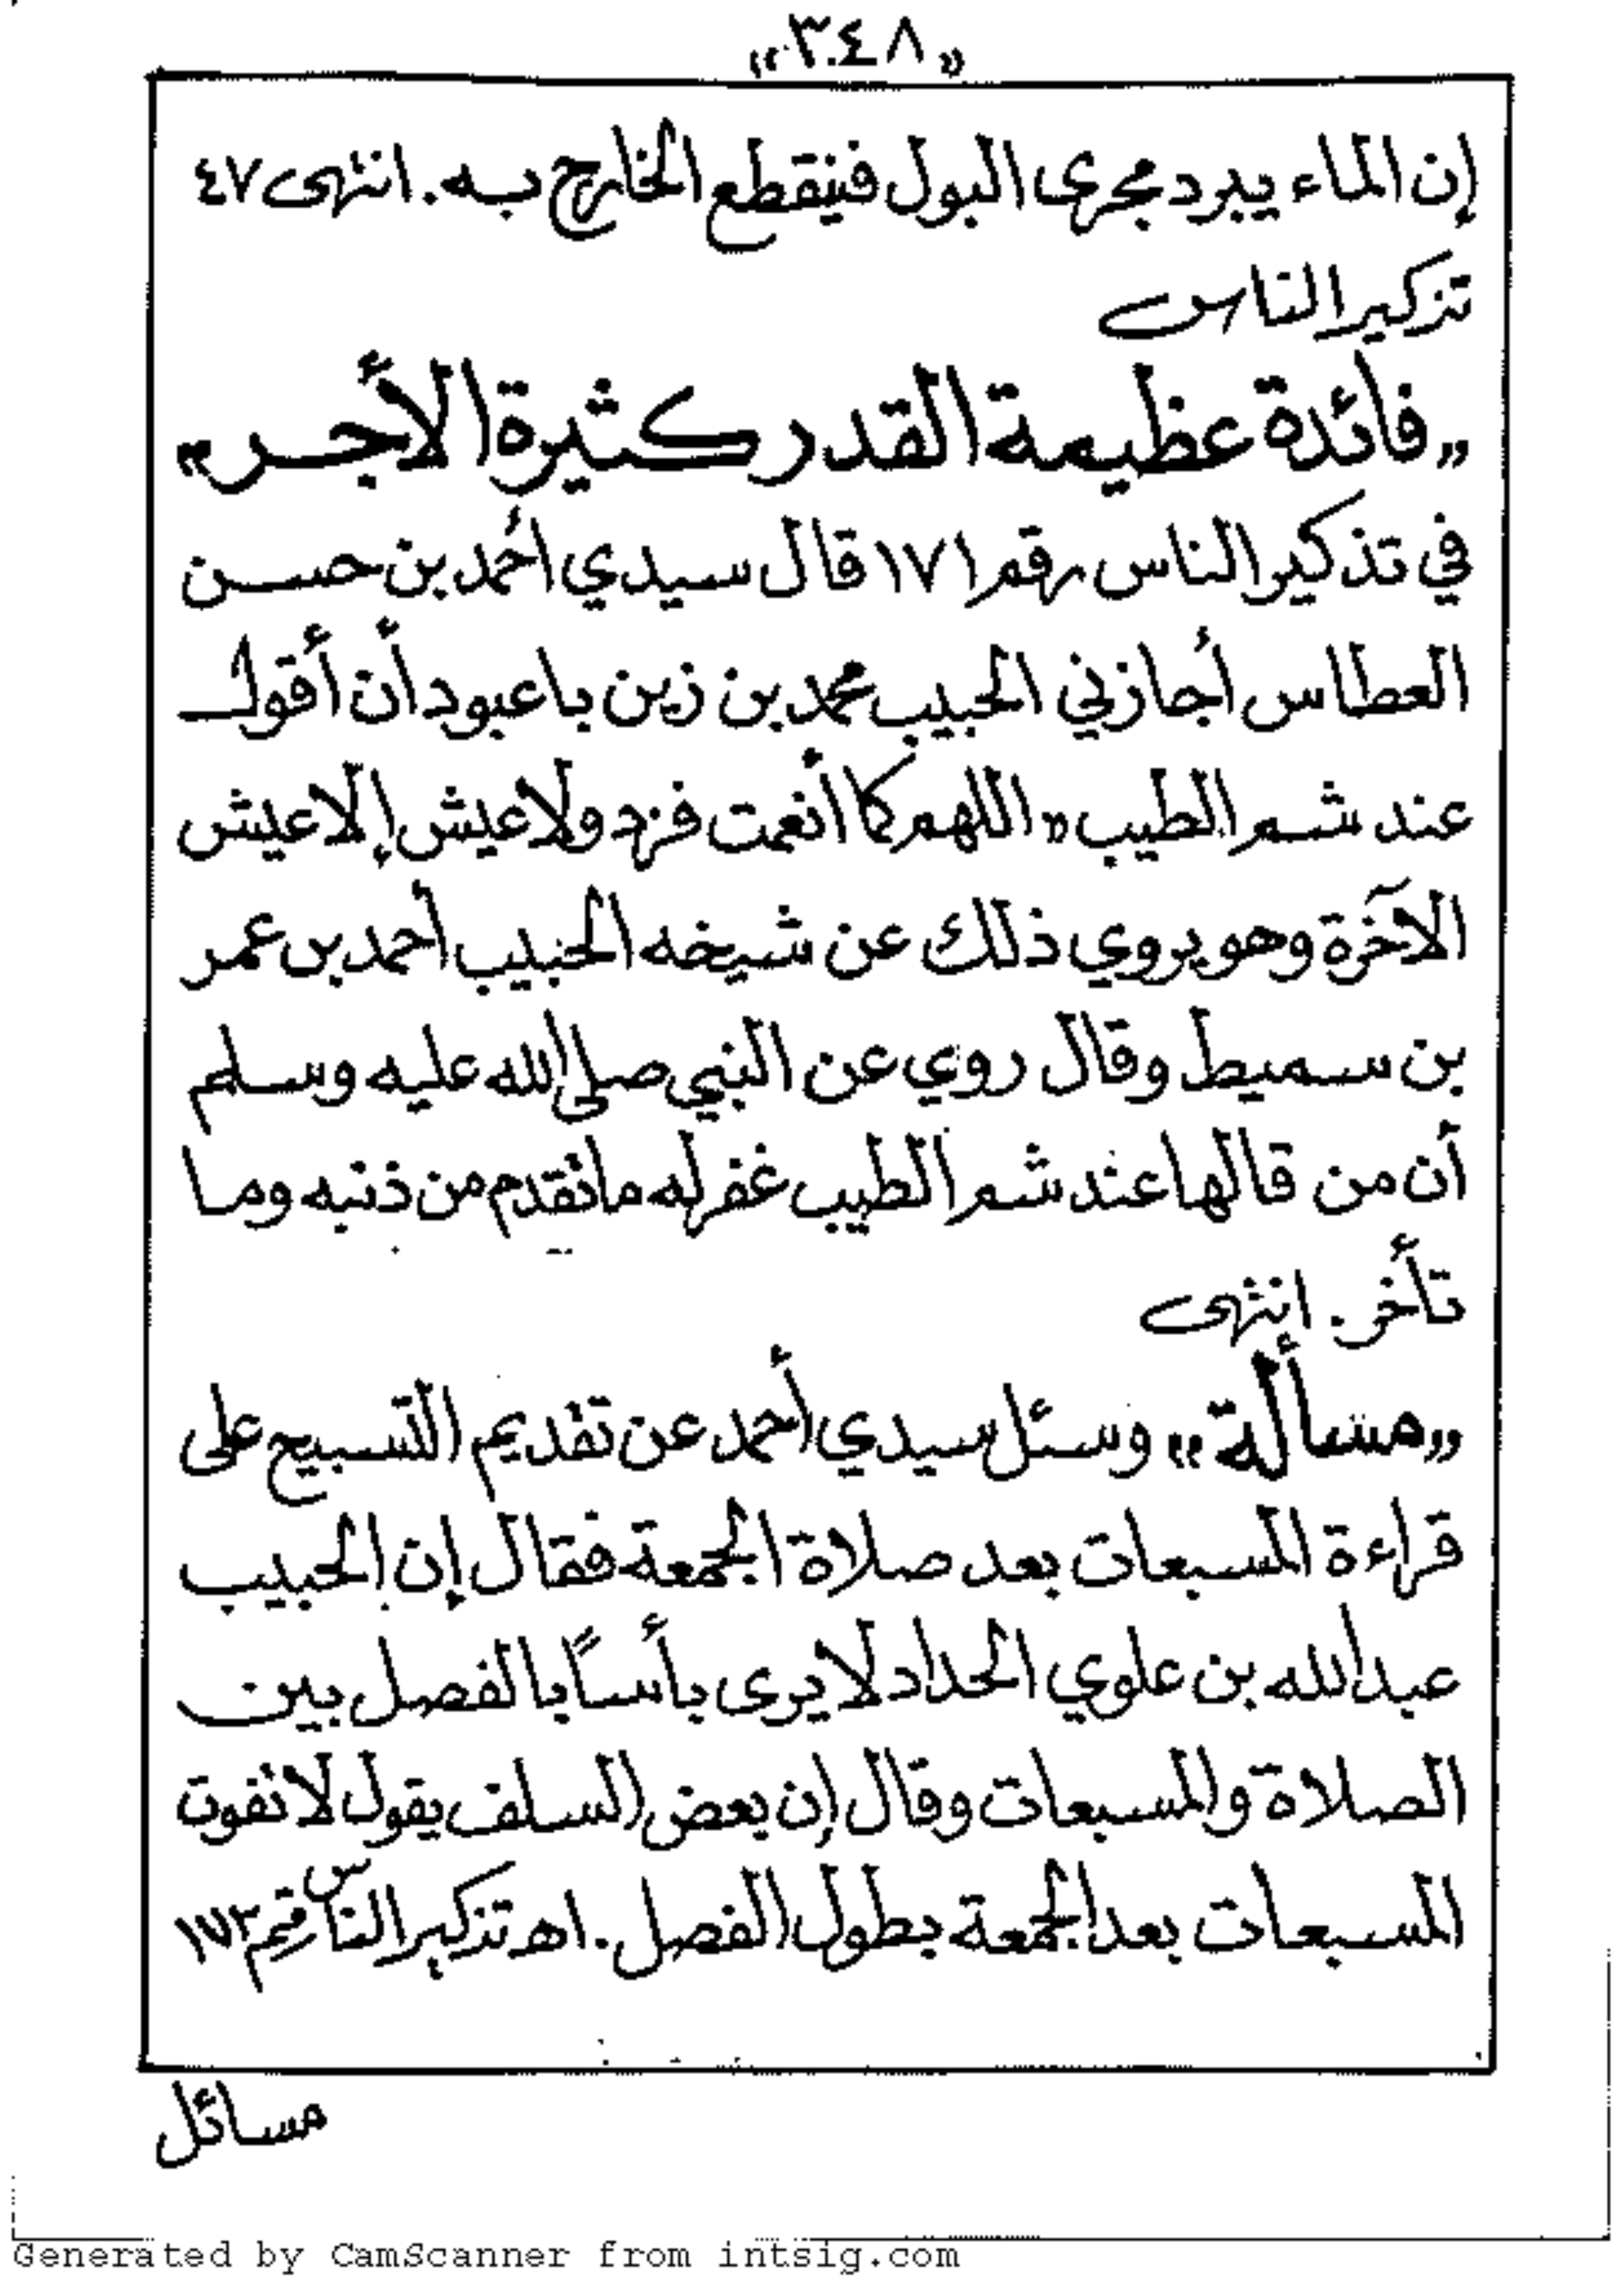 «٣٤٨»
إن الماء يبرد مجرى البول فينقطع الخارج به. انتهى ٤٧
تزكير الناس
«فائدة عظيمة القدر كثيرة الأجر»
في تذكير الناس رقم ١٧١ قال سيدي أحمد بن حسن
العطاس أجازني الحبيب محمد بن زين باعبود أن أقول
عند شم الطيب «اللهم كما أنعمت فزد ولا عيش إلا عيش
الآخرة وهو يروي ذلك عن شيخه الحبيب أحمد بن عمر
بن سميط وقال روي عن النبي صلى الله عليه وسلم
أن من قالها عند شم الطيب غفر له ما تقدم من ذنبه وما
تأخر. انتهى
«مسألة» وسئل سيدي أحمد عن تقديم التسبيح على
قراءة المسبعات بعد صلاة الجمعة فقال إن الحبيب
عبد الله بن علوي الحداد لا يرى بأسًا بالفصل بين
الصلاة والمسبعات وقال إن بعض السلف يقول لا تفوت
المسبعات بعد الجمعة بطول الفصل. اهـ تزكير الناس رقم ١٧٢
مسائل
Generated by CamScanner from intsig.com